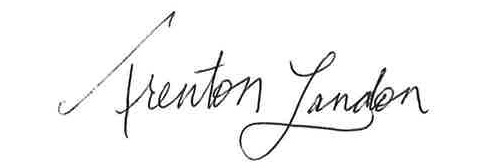 Trenton Landon